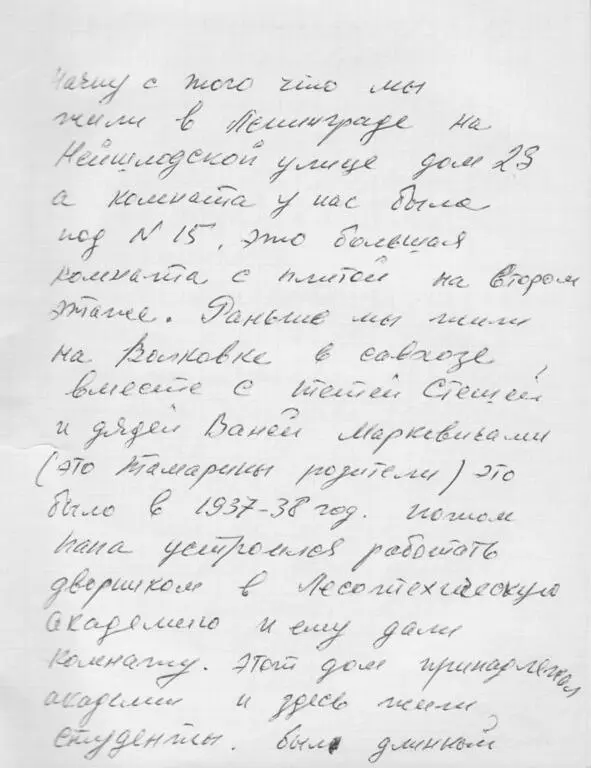 Начну с того что мы
жили в Ленинграде на
Нейшлодской улице дом 23
а комната у нас была
под N 15, это большая
комната с плитой на втором
этаже. Раньше мы жили
на Волковке в савхозе,
вместе с тетей Стешей
и дядей Ваней Марковичами
(это Тамарины родители) это
было в 1937-38 год. потом
папа устроился работать
дворником в Лесотехническую
академию и ему дали
комнату. этот дом принадлежал
академии и здесь жили
студенты. был длинный